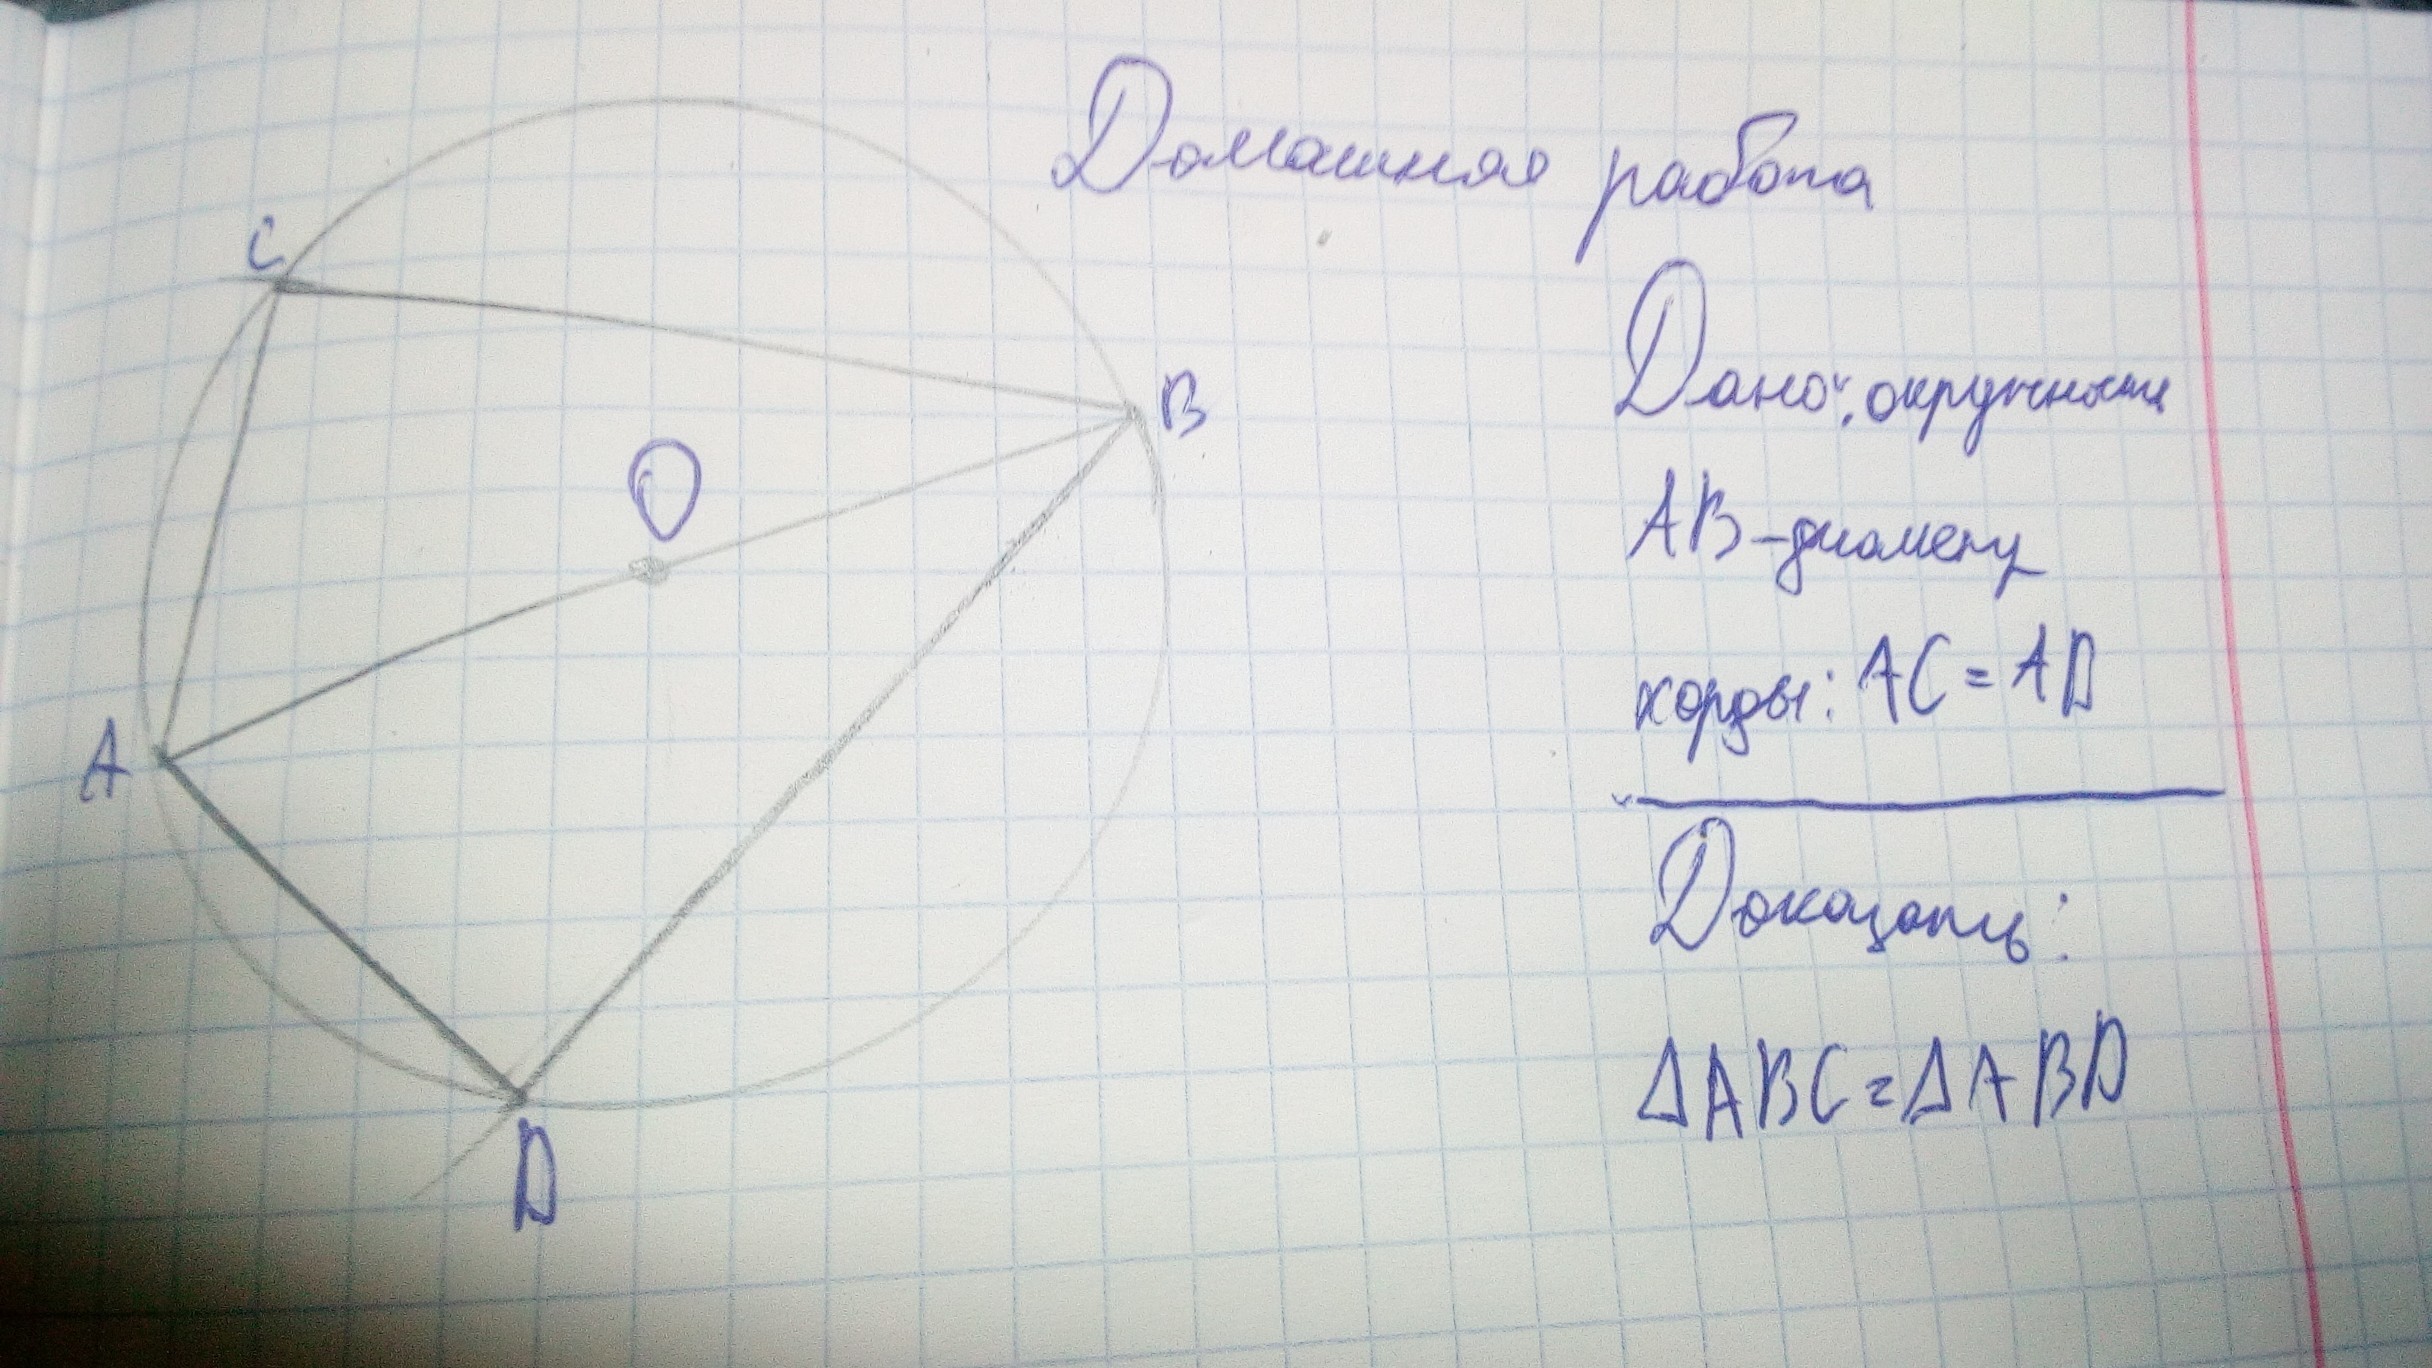 Домашняя работа
C
B
O
A
D
Дано: окружность
AB-диаметр
хорды: AC = AD
Доказать:
ΔABC = ΔABD